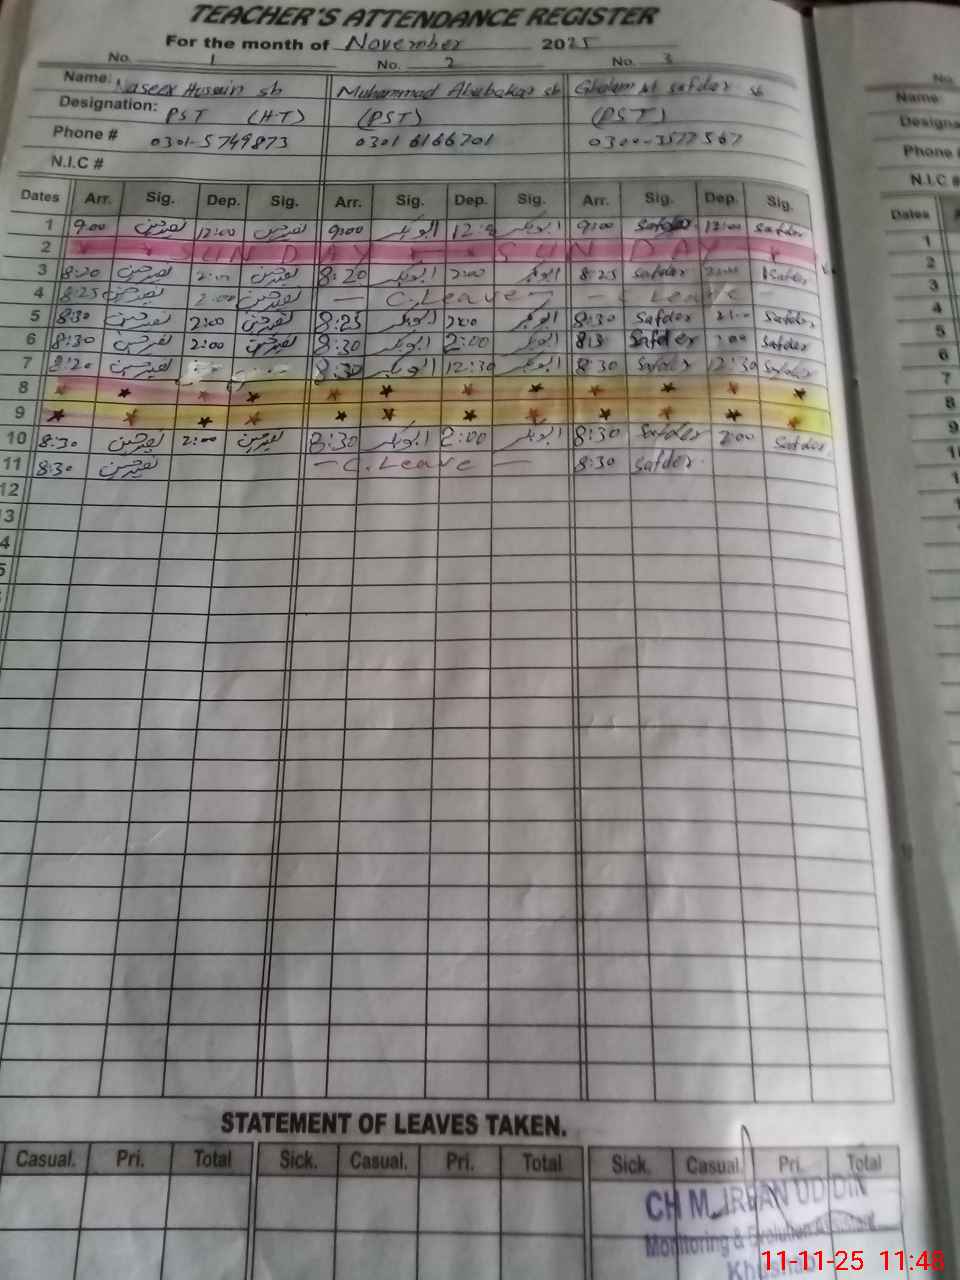 TEACHER'S ATTENDANCE REGISTER
For the month of November 2025
No. 1 No. 2 No. 3
Name: Naseer Husain sb Muhammad Abubakar sb Gholam safder sb
Designation: PST (HT) (PST) (PST)
Phone # 0301-5749873 0301 6166701 0300-3577567
N.I.C #
Dates Arr. Sig. Dep. Sig. Arr. Sig. Dep. Sig. Arr. Sig. Dep. Sig.
1 9:00 نصیر حسین 12:00 نصیر حسین 9:00 ابوبکر ابوبکر 9:00 Safder 12:00 Safder
2 SUNDAY SUNDAY
3 8:20 نصیر حسین 2:00 نصیر حسین 8:20 ابوبکر 2:00 ابوبکر 8:25 Safder 2:00 Safder
4 8:25 نصیر حسین 2:00 نصیر حسین — C.Leave — — C Leave —
5 8:30 نصیر حسین 2:00 نصیر حسین 8:25 ابوبکر 2:00 ابوبکر 8:30 Safder Safder
6 8:30 نصیر حسین 2:00 نصیر حسین 8:30 ابوبکر 2:00 ابوبکر Safder Safder
7 8:20 نصیر حسین 8:30 ابوبکر 12:30 ابوبکر 8:30 Safder 12:30 Safder
8
9
10 8:30 نصیر حسین 2:00 نصیر حسین 8:30 ابوبکر 2:00 ابوبکر 8:30 Safder 2:00 Safder
11 8:30 نصیر حسین — C.Leave — 8:30 Safder
12
3
4
5
STATEMENT OF LEAVES TAKEN.
Casual. Pri. Total Sick. Casual. Pri. Total Sick. Casual. Pri. Total
CH M. IRFAN UD DIN
Monitoring & Evolution Assistant
Khushab
11-11-25 11:48
No.
Name
Designa
Phone #
N.I.C #
Dates
1
2
3
4
5
6
7
8
9